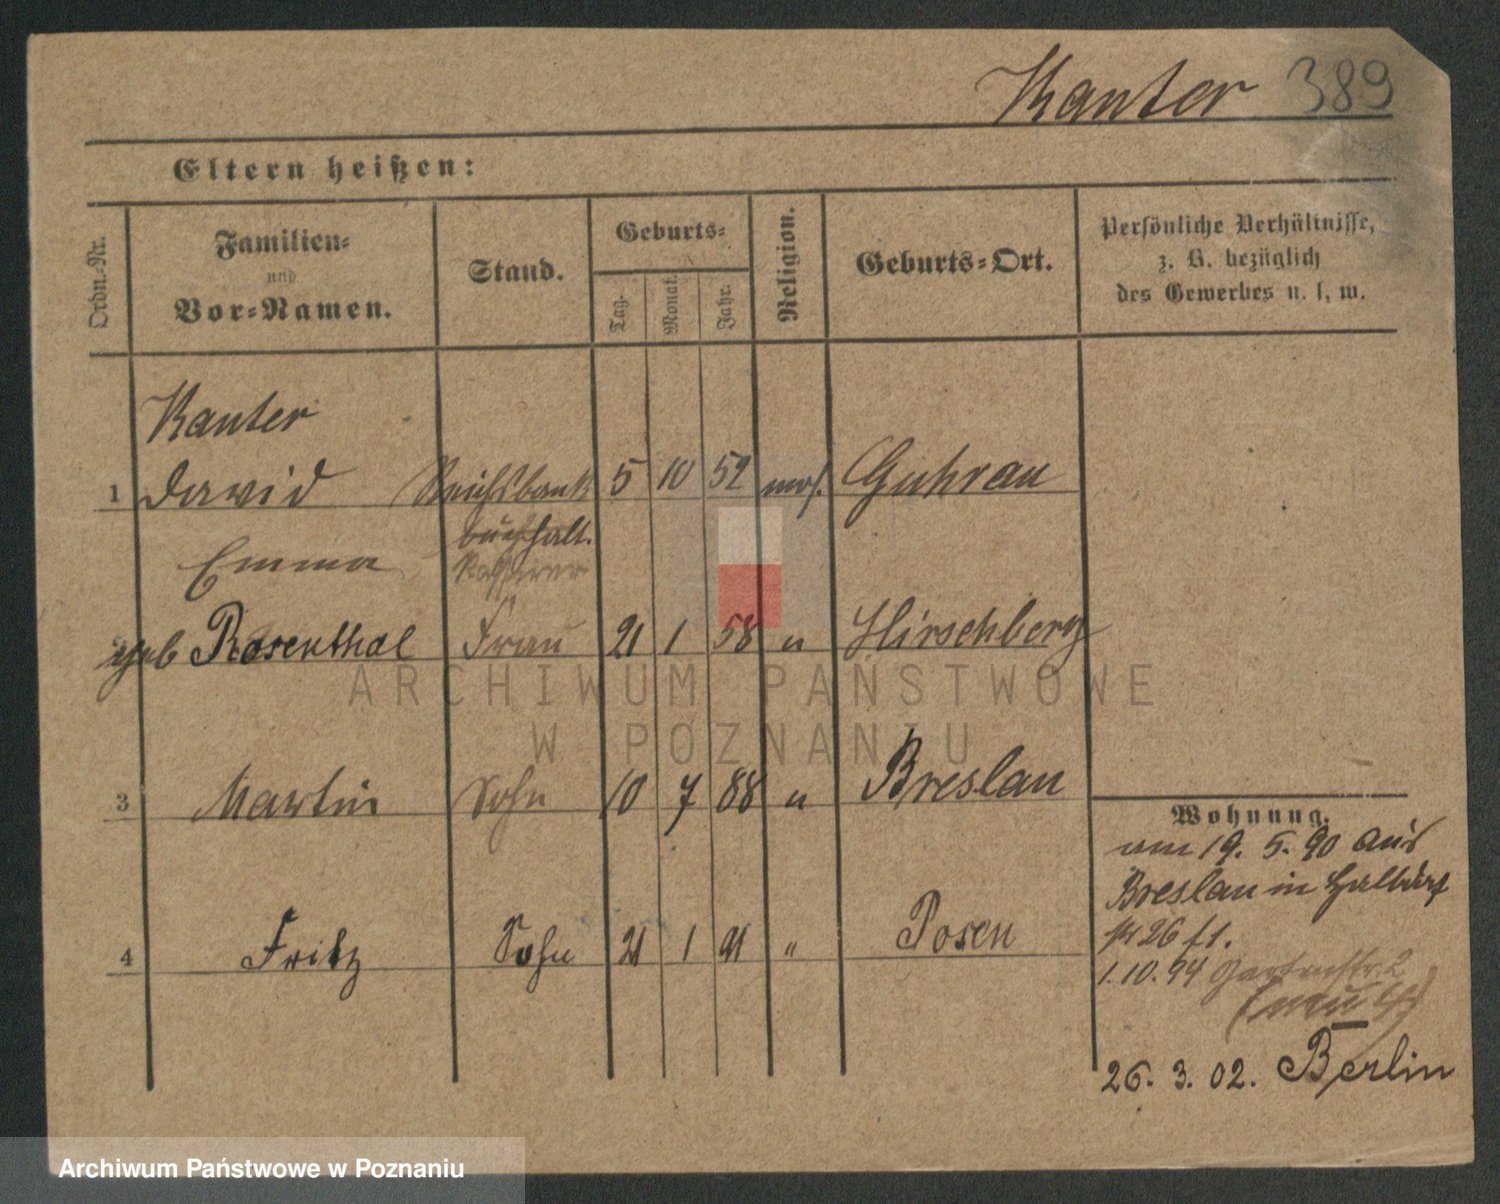 Kanter 389
Eltern heißen:
Ordn.-Nr.
Familien-
und
Vor-Namen.
Stand.
Geburts-
Tag.
Monat.
Jahr.
Religion.
Geburts-Ort.
Persönliche Verhältnisse,
z. B. bezüglich
des Gewerbes u. s. w.
Kanter
1 David Reichsbank 5 10 52 mos. Guhrau
buchhalt.
Emma Kassierer
geb Rosenthal Frau 21 1 58 " Hirschberg
3 Martin Sohn 10 7 88 " Breslau
4 Fritz Sohn 21 1 91 " Posen
Wohnung.
am 19. 5. 90 aus
Breslau in Halbdorf
str 26 f 1.
1. 10. 94 Gartenstr. 2
(neu 4)
26. 3. 02. Berlin
ARCHIWUM PAŃSTWOWE
W POZNANIU
Archiwum Państwowe w Poznaniu